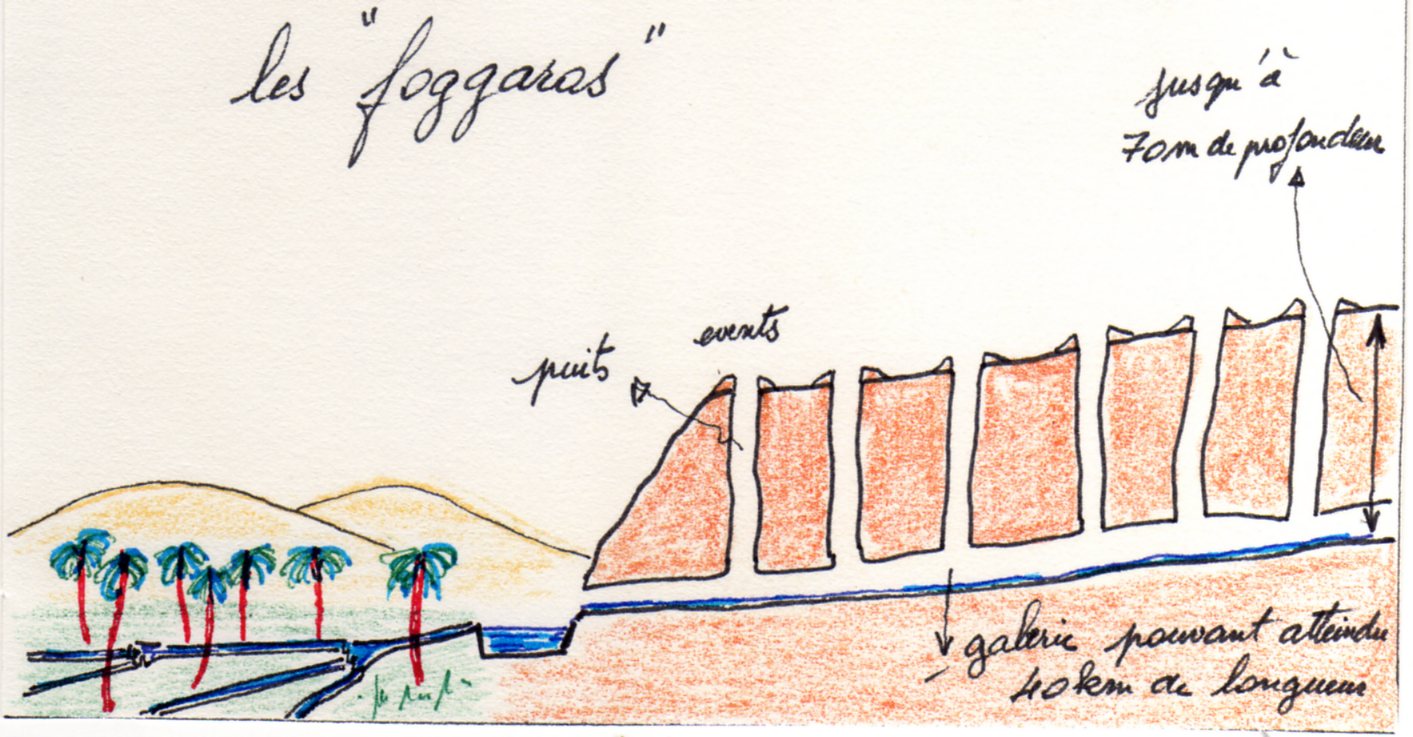 les "foggaras"
jusqu'à
70m de profondeur
events
puits
galerie pouvant atteindre
40km de longueur